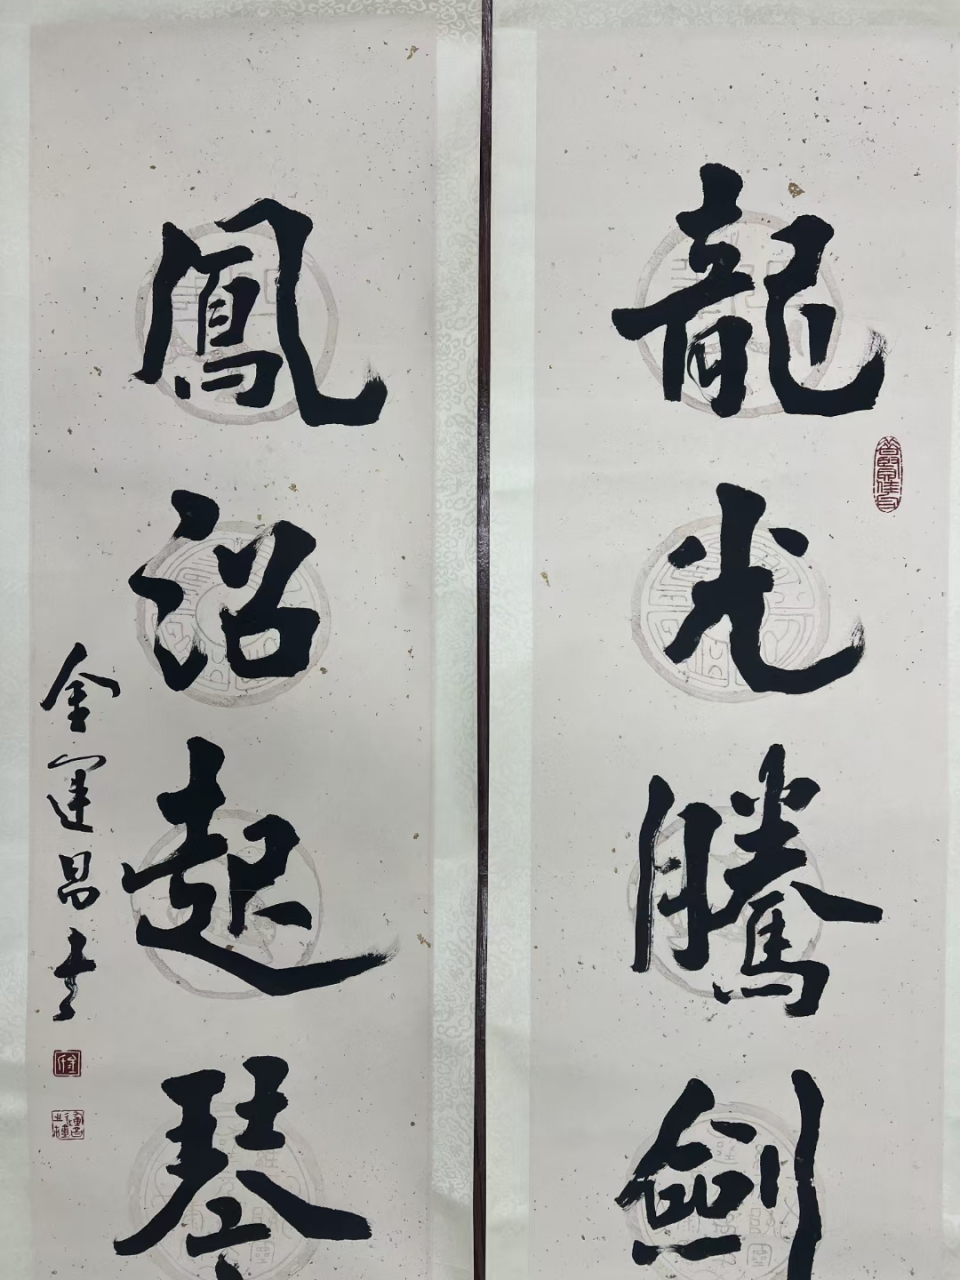 龍光騰劍
鳳沼起琴
金運昌書